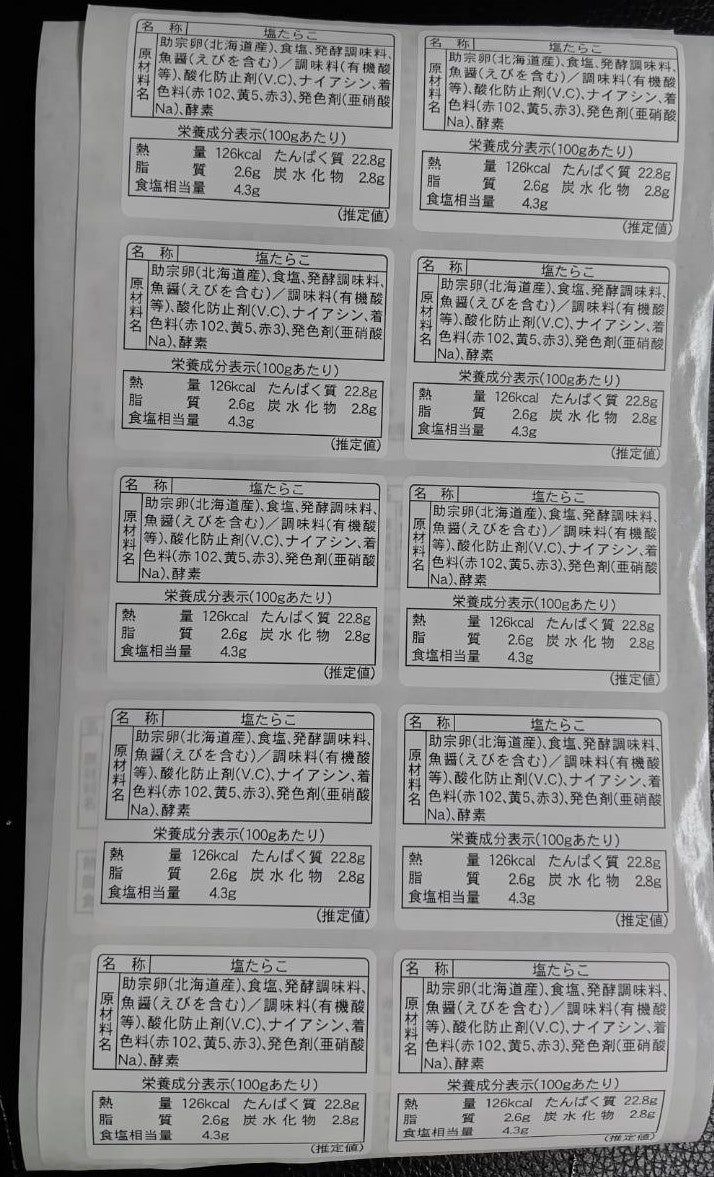 名 称 塩たらこ
原材料名 助宗卵(北海道産)、食塩、発酵調味料、
魚醤(えびを含む)／調味料(有機酸
等)、酸化防止剤(V.C)、ナイアシン、着
色料(赤102、黄5、赤3)、発色剤(亜硝酸
Na)、酵素
栄養成分表示(100gあたり)
熱 量 126kcal たんぱく質 22.8g
脂 質 2.6g 炭水化物 2.8g
食塩相当量 4.3g
(推定値)
名 称 塩たらこ
原材料名 助宗卵(北海道産)、食塩、発酵調味料、
魚醤(えびを含む)／調味料(有機酸
等)、酸化防止剤(V.C)、ナイアシン、着
色料(赤102、黄5、赤3)、発色剤(亜硝酸
Na)、酵素
栄養成分表示(100gあたり)
熱 量 126kcal たんぱく質 22.8g
脂 質 2.6g 炭水化物 2.8g
食塩相当量 4.3g
(推定値)
名 称 塩たらこ
原材料名 助宗卵(北海道産)、食塩、発酵調味料、
魚醤(えびを含む)／調味料(有機酸
等)、酸化防止剤(V.C)、ナイアシン、着
色料(赤102、黄5、赤3)、発色剤(亜硝酸
Na)、酵素
栄養成分表示(100gあたり)
熱 量 126kcal たんぱく質 22.8g
脂 質 2.6g 炭水化物 2.8g
食塩相当量 4.3g
(推定値)
名 称 塩たらこ
原材料名 助宗卵(北海道産)、食塩、発酵調味料、
魚醤(えびを含む)／調味料(有機酸
等)、酸化防止剤(V.C)、ナイアシン、着
色料(赤102、黄5、赤3)、発色剤(亜硝酸
Na)、酵素
栄養成分表示(100gあたり)
熱 量 126kcal たんぱく質 22.8g
脂 質 2.6g 炭水化物 2.8g
食塩相当量 4.3g
(推定値)
名 称 塩たらこ
原材料名 助宗卵(北海道産)、食塩、発酵調味料、
魚醤(えびを含む)／調味料(有機酸
等)、酸化防止剤(V.C)、ナイアシン、着
色料(赤102、黄5、赤3)、発色剤(亜硝酸
Na)、酵素
栄養成分表示(100gあたり)
熱 量 126kcal たんぱく質 22.8g
脂 質 2.6g 炭水化物 2.8g
食塩相当量 4.3g
(推定値)
名 称 塩たらこ
原材料名 助宗卵(北海道産)、食塩、発酵調味料、
魚醤(えびを含む)／調味料(有機酸
等)、酸化防止剤(V.C)、ナイアシン、着
色料(赤102、黄5、赤3)、発色剤(亜硝酸
Na)、酵素
栄養成分表示(100gあたり)
熱 量 126kcal たんぱく質 22.8g
脂 質 2.6g 炭水化物 2.8g
食塩相当量 4.3g
(推定値)
名 称 塩たらこ
原材料名 助宗卵(北海道産)、食塩、発酵調味料、
魚醤(えびを含む)／調味料(有機酸
等)、酸化防止剤(V.C)、ナイアシン、着
色料(赤102、黄5、赤3)、発色剤(亜硝酸
Na)、酵素
栄養成分表示(100gあたり)
熱 量 126kcal たんぱく質 22.8g
脂 質 2.6g 炭水化物 2.8g
食塩相当量 4.3g
(推定値)
名 称 塩たらこ
原材料名 助宗卵(北海道産)、食塩、発酵調味料、
魚醤(えびを含む)／調味料(有機酸
等)、酸化防止剤(V.C)、ナイアシン、着
色料(赤102、黄5、赤3)、発色剤(亜硝酸
Na)、酵素
栄養成分表示(100gあたり)
熱 量 126kcal たんぱく質 22.8g
脂 質 2.6g 炭水化物 2.8g
食塩相当量 4.3g
(推定値)
名 称 塩たらこ
原材料名 助宗卵(北海道産)、食塩、発酵調味料、
魚醤(えびを含む)／調味料(有機酸
等)、酸化防止剤(V.C)、ナイアシン、着
色料(赤102、黄5、赤3)、発色剤(亜硝酸
Na)、酵素
栄養成分表示(100gあたり)
熱 量 126kcal たんぱく質 22.8g
脂 質 2.6g 炭水化物 2.8g
食塩相当量 4.3g
(推定値)
名 称 塩たらこ
原材料名 助宗卵(北海道産)、食塩、発酵調味料、
魚醤(えびを含む)／調味料(有機酸
等)、酸化防止剤(V.C)、ナイアシン、着
色料(赤102、黄5、赤3)、発色剤(亜硝酸
Na)、酵素
栄養成分表示(100gあたり)
熱 量 126kcal たんぱく質 22.8g
脂 質 2.6g 炭水化物 2.8g
食塩相当量 4.3g
(推定値)